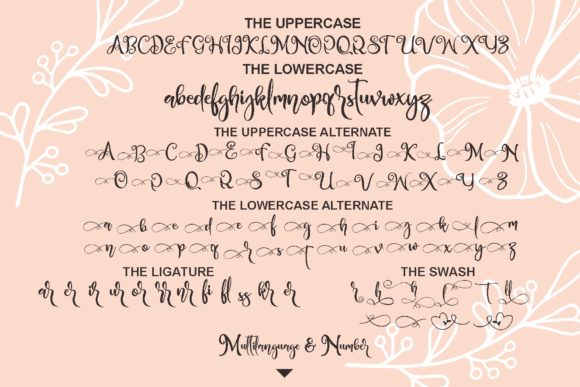 THE UPPERCASE
ABCDEFGHIJKLMNOPQRSTUVWXYZ
THE LOWERCASE
abcdefghijklmnopqrstuvwxyz
THE UPPERCASE ALTERNATE
A B C D E F G H I J K L M N
O P Q R S T U V W X Y Z
THE LOWERCASE ALTERNATE
a b c d e f g h i j k l m
n o p q r s t u v w x y z
THE LIGATURE THE SWASH
ar er ir ur or rr nr fi fl ss kr er
Multilanguage & Number